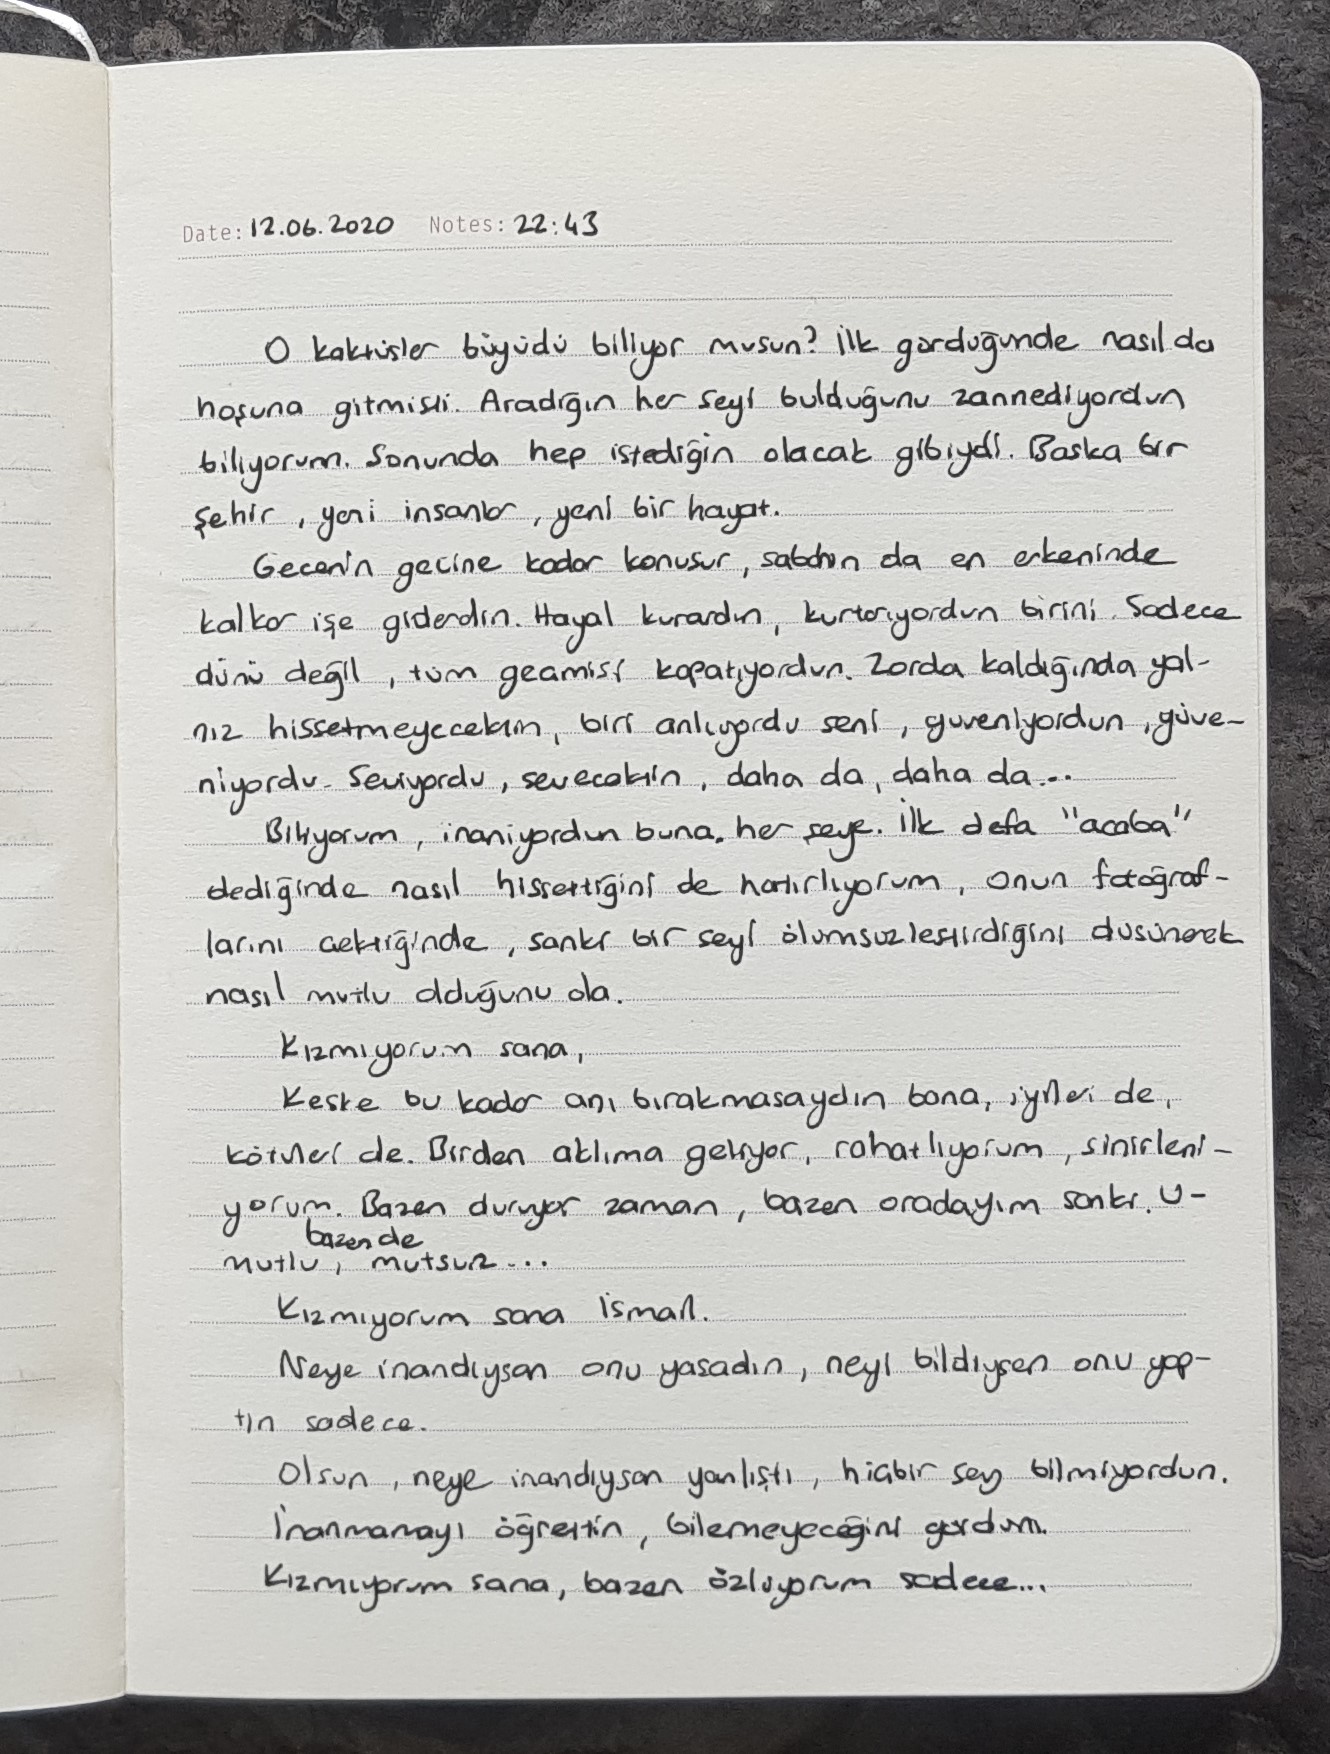 Date: 12.06.2020 Notes: 22:43
O kaktüsler büyüdü biliyor musun? İlk gördüğünde nasıl da
hoşuna gitmişti. Aradığın her şeyi bulduğunu zannediyordun
biliyorum. Sonunda hep istediğin olacak gibiydi. Başka bir
şehir, yeni insanlar, yeni bir hayat.
Gecenin geçine kadar konuşur, sabahın da en erkeninde
kalkar işe giderdin. Hayal kurardın, kurtarıyordun birini. Sadece
dünü değil, tüm geçmişi kapatıyordun. Zorda kaldığında yal-
nız hissetmeyecektin, biri anlıyordu seni, güveniyordun, güve-
niyordu. Seviyordu, sevecektin, daha da, daha da...
Biliyorum, inanıyordun buna, her şeye. İlk defa "acaba"
dediğinde nasıl hissettiğini de hatırlıyorum, onun fotoğraf-
larını çektiğinde, sanki bir şeyi ölümsüzleştirdiğini düşünerek
nasıl mutlu olduğunu da.
Kızmıyorum sana,
Keşke bu kadar anı bırakmasaydın bana, iyileri de,
kötüleri de. Birden aklıma geliyor, rahatlıyorum, sinirleni-
yorum. Bazen duruyor zaman, bazen oradayım sanki. U-
bazen de
mutlu, mutsuz...
Kızmıyorum sana İsmail.
Neye inandıysan onu yaşadın, neyi bildiysen onu yap-
tın sadece.
Olsun, neye inandıysan yanlıştı, hiçbir şey bilmiyordun.
İnanmamayı öğrettin, bilemeyeceğini gördüm.
Kızmıyorum sana, bazen özlüyorum sadece...